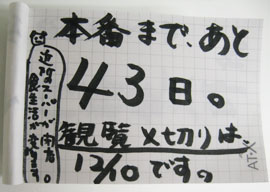 本番まで、あと
43日。
観覧〆切りは、
12/10です。
近所のスーパーが閉店。
食生活が変わります